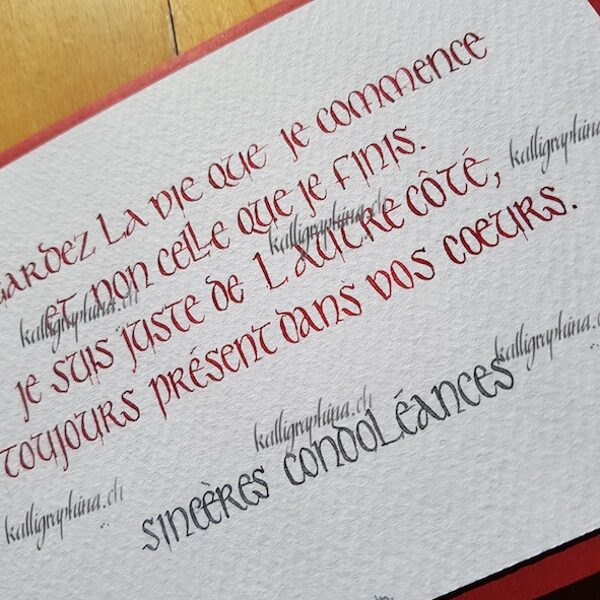 gardez la vie que je commence
et non celle que je finis.
je suis juste de l'autre côté,
toujours présent dans vos coeurs.
sincères condoléances
kalligraphina.ch
kalligraphina.ch
kalligraphina.ch
kalligraphina.ch
kalligraphina.ch
kalligraphina